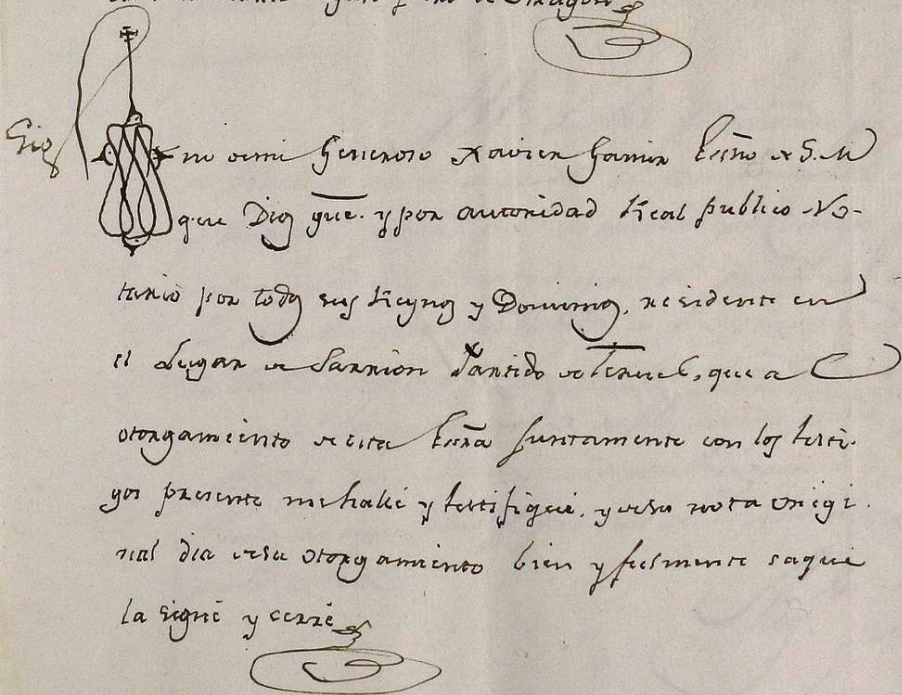 Sig no de mi Generoso Xavier Garcia Esño de S. M
que Dios gue. y por autoridad Real publico No-
tario por todos sus Reynos y Dominios, residente en
el Lugar de Sarrion Partido de Teruel, que al
otorgamiento de esta Essra juntamente con los testi-
gos presente me hallé y testifiqué, y de su nota origi-
nal dia de su otorgamiento bien y fielmente saque
la signé y cerré